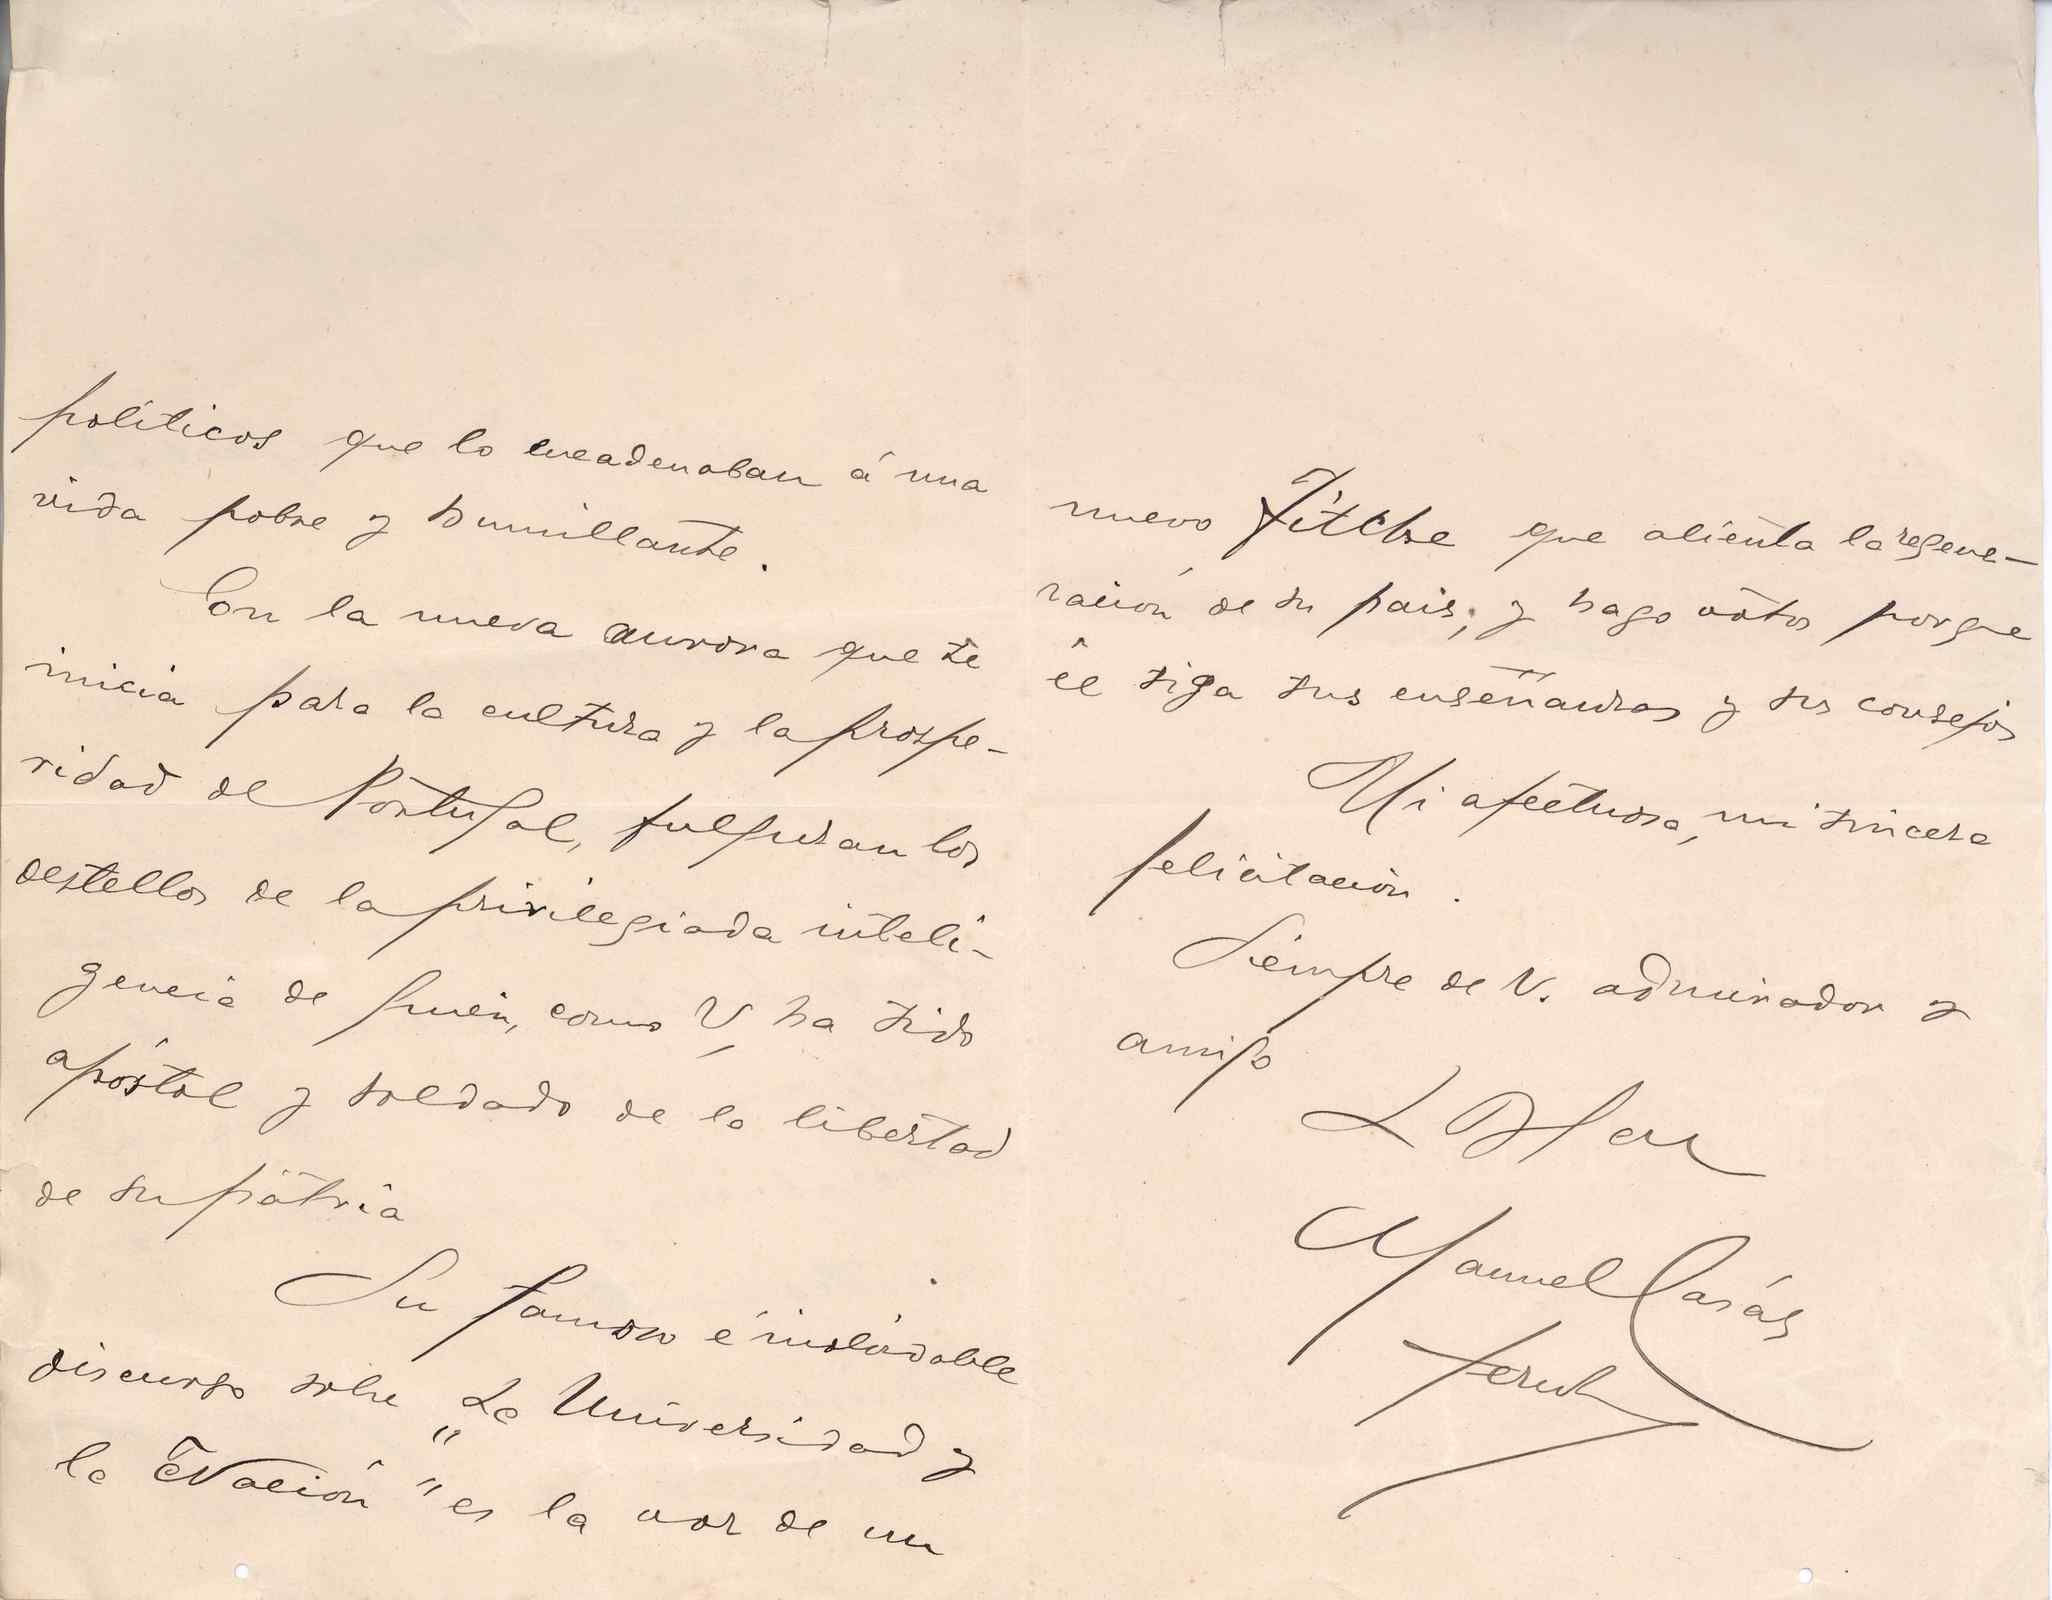 políticos que lo encadenaban á una
vida pobre y humillante.
Con la nueva aurora que se
inicia para la cultura y la prospe-
ridad de Portugal, fulguran los
destellos de la privilegiada inteli-
gencia de quien, como V, ha sido
apóstol y soldado de la libertad
de su pátria
Su famoso é inolvidable
discurso sobre "La Universidad y
la Nación" es la voz de un
nuevo Fitche que alienta la regene-
ración de su pais; y hago votos porque
se siga sus enseñanzas y sus consejos
Mi afectuosa, mi sincera
felicitación.
Siempre de V. admirador y
amigo
Manuel Casás
Fernz